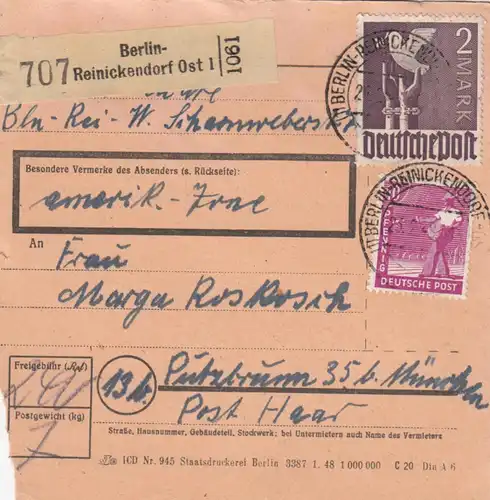 Berlin-
707 Reinickendorf Ost 1
1061
Bln-Rei-W. Scharnweberstr.
Besondere Vermerke des Absenders (s. Rückseite):
amerik. Zone
An
Frau
Marga Roskosch
Freigebühr (RM)
Postgewicht (kg)
7
13b.
Putzbrunn 35 b. München
Post Haar
Straße, Hausnummer, Gebäudeteil, Stockwerk; bei Untermietern auch Name des Vermieters
ICD Nr. 945 Staatsdruckerei Berlin 3387 1. 48 1 000 000 C 20 Din A 6
2 MARK
Deutsche Post
BERLIN-REINICKEND
PFENNIG
DEUTSCHE POST
BERLIN-REINICKENDORF